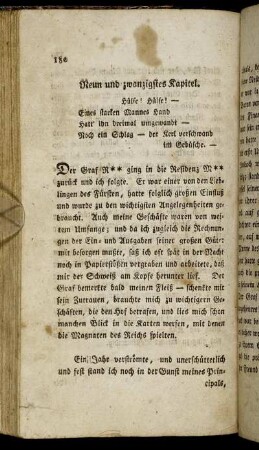 180
Neun und zwanzigstes Kapitel.
Hülfe! Hülfe! —
Eines starken Mannes Hand
Hatt' ihn dreimal umgewandt —
Noch ein Schlag — der Kerl verschwand
im Gebüsche. —
Der Graf R** ging in die Residenz M**
zurück und ich folgte. Er war einer von den Lieb-
lingen des Fürsten, hatte folglich großen Einfluß
und wurde zu den wichtigsten Angelegenheiten ge-
braucht. Auch meine Geschäfte waren von wei-
tem Umfange; und da ich zugleich die Rechnun-
gen der Ein- und Ausgaben seiner großen Güter
mit besorgen mußte, saß ich oft spät in der Nacht
noch in Papierstößen vergraben und arbeitete, daß
mir der Schweiß am Kopfe herunter lief. Der
Graf bemerkte bald meinen Fleiß — schenkte mir
sein Zutrauen, brauchte mich zu wichtigern Ge-
schäften, die den Hof betrafen, und ließ mich schon
manchen Blick in die Karten werfen, mit denen
die Magnaten des Reichs spielten.
Ein Jahr verströmte, und unerschütterlich
und fest stand ich noch in der Gunst meines Prin-
cipals,